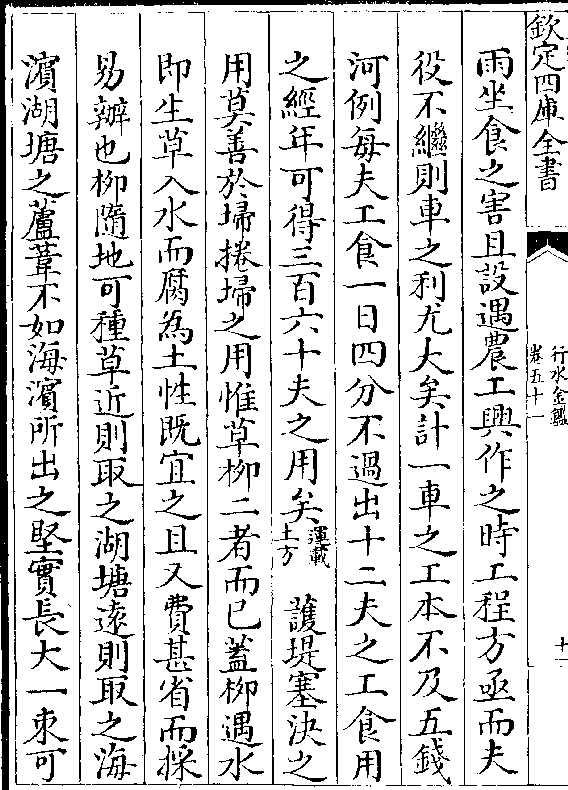 欽定四庫全書
行水金鑑
卷五十一
十一
雨坐食之害且設遇農工興作之時工程方亟而夫
役不繼則車之利尤大矣計一車之工本不及五錢
河例每夫工食一日四分不過出十二夫之工食用
之經年可得三百六十夫之用矣運載土方 護堤塞決之
用莫善於埽捲埽之用惟草柳二者而已蓋柳遇水
即生草入水而腐為土性既宜之且又費甚省而採
易辦也柳隨地可種草近則取之湖塘遠則取之海
濱湖塘之蘆葦不如海濱所出之堅實長大一束可